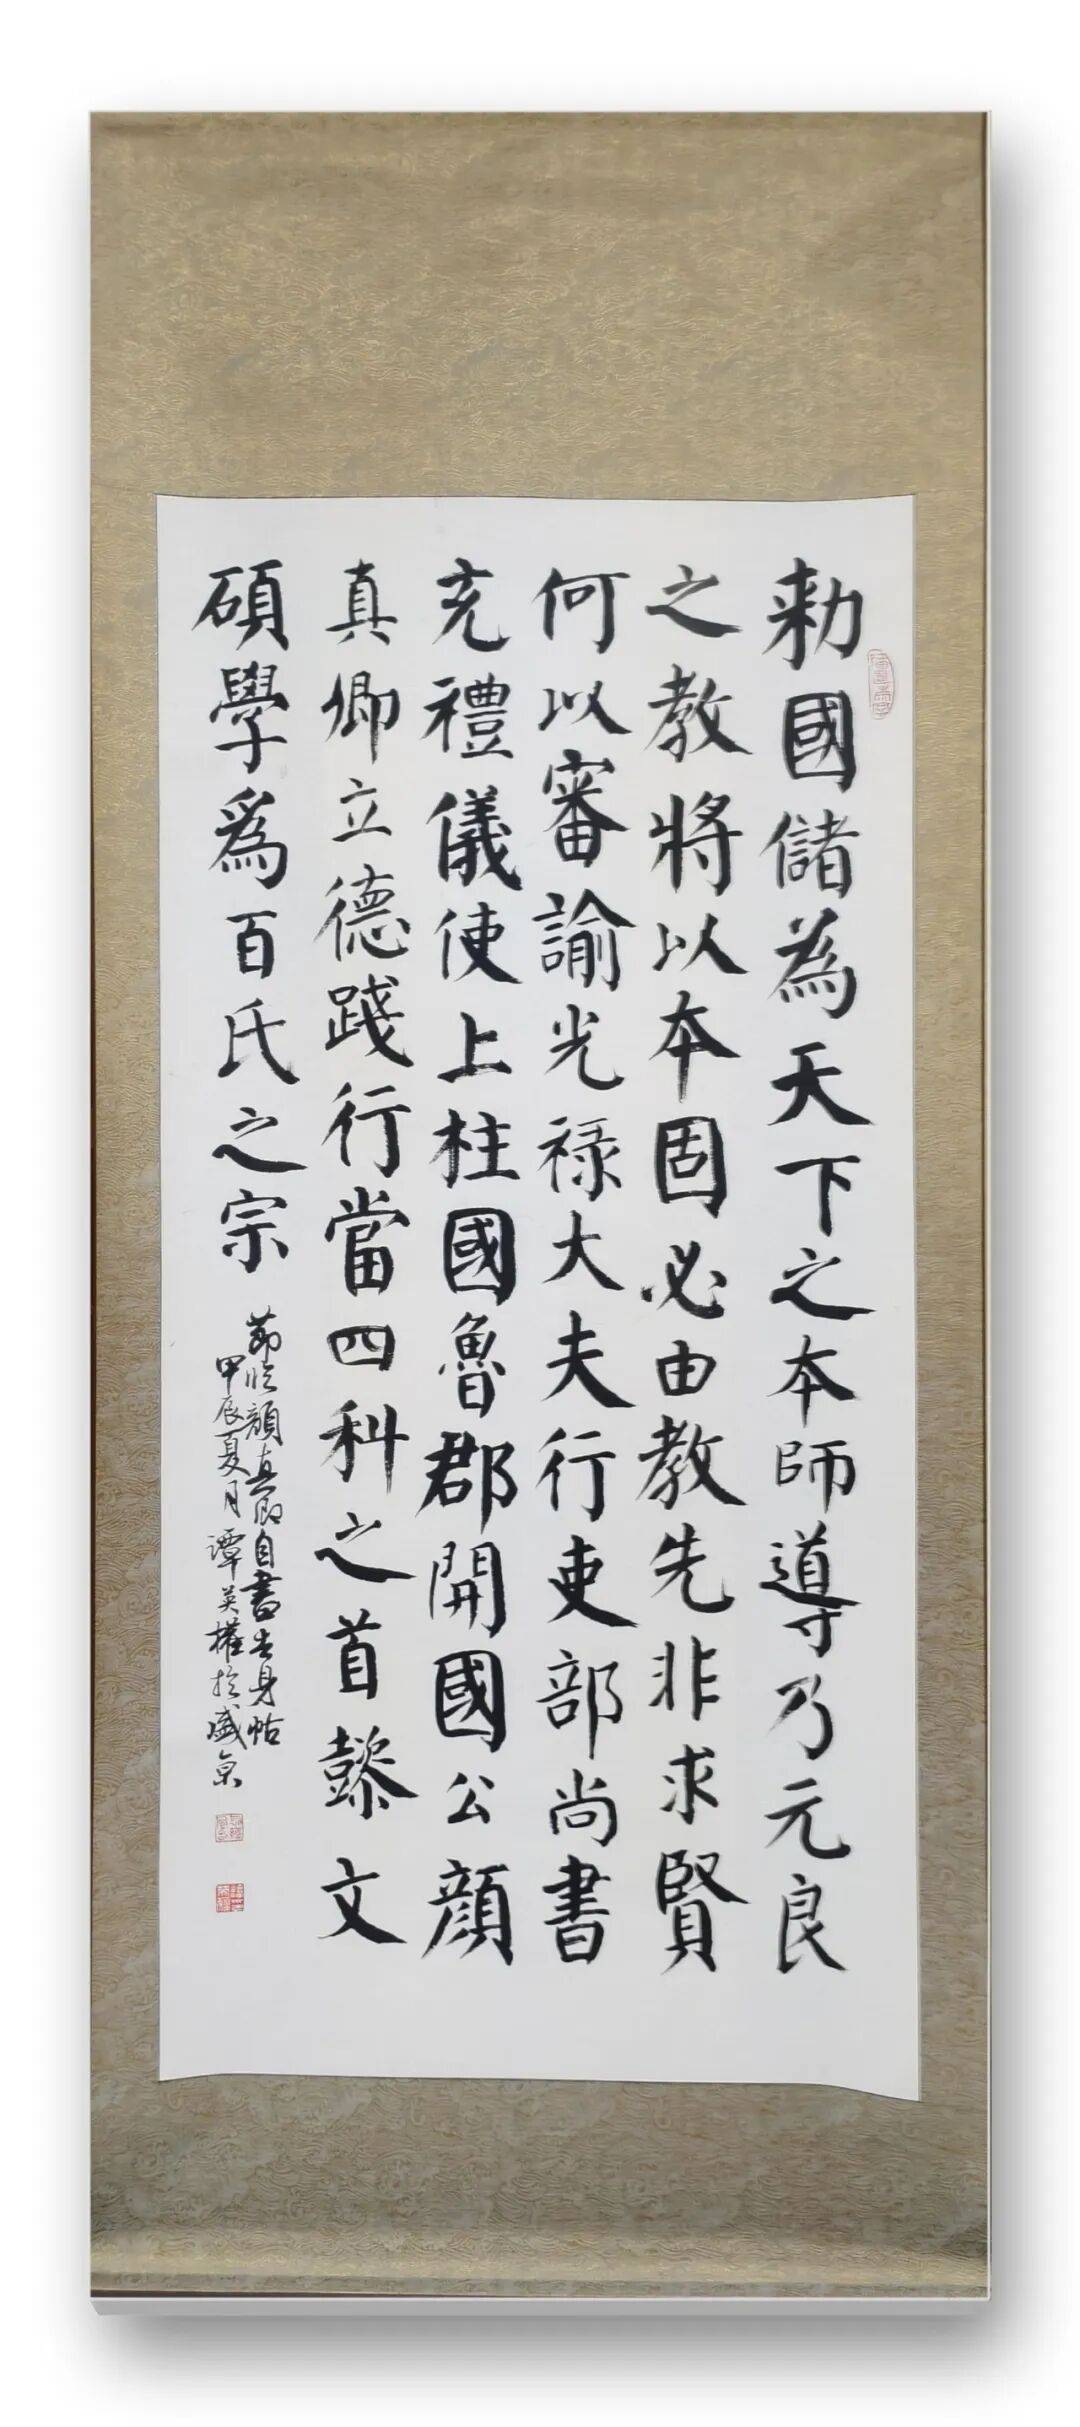 勑國儲為天下之本師導乃元良
之教將以本固必由教先非求賢
何以審諭光祿大夫行吏部尚書
充禮儀使上柱國魯郡開國公顏
真卿立德踐行當四科之首懿文
碩學爲百氏之宗
節臨顏真卿自書告身帖
甲辰夏月譚英權於盛京